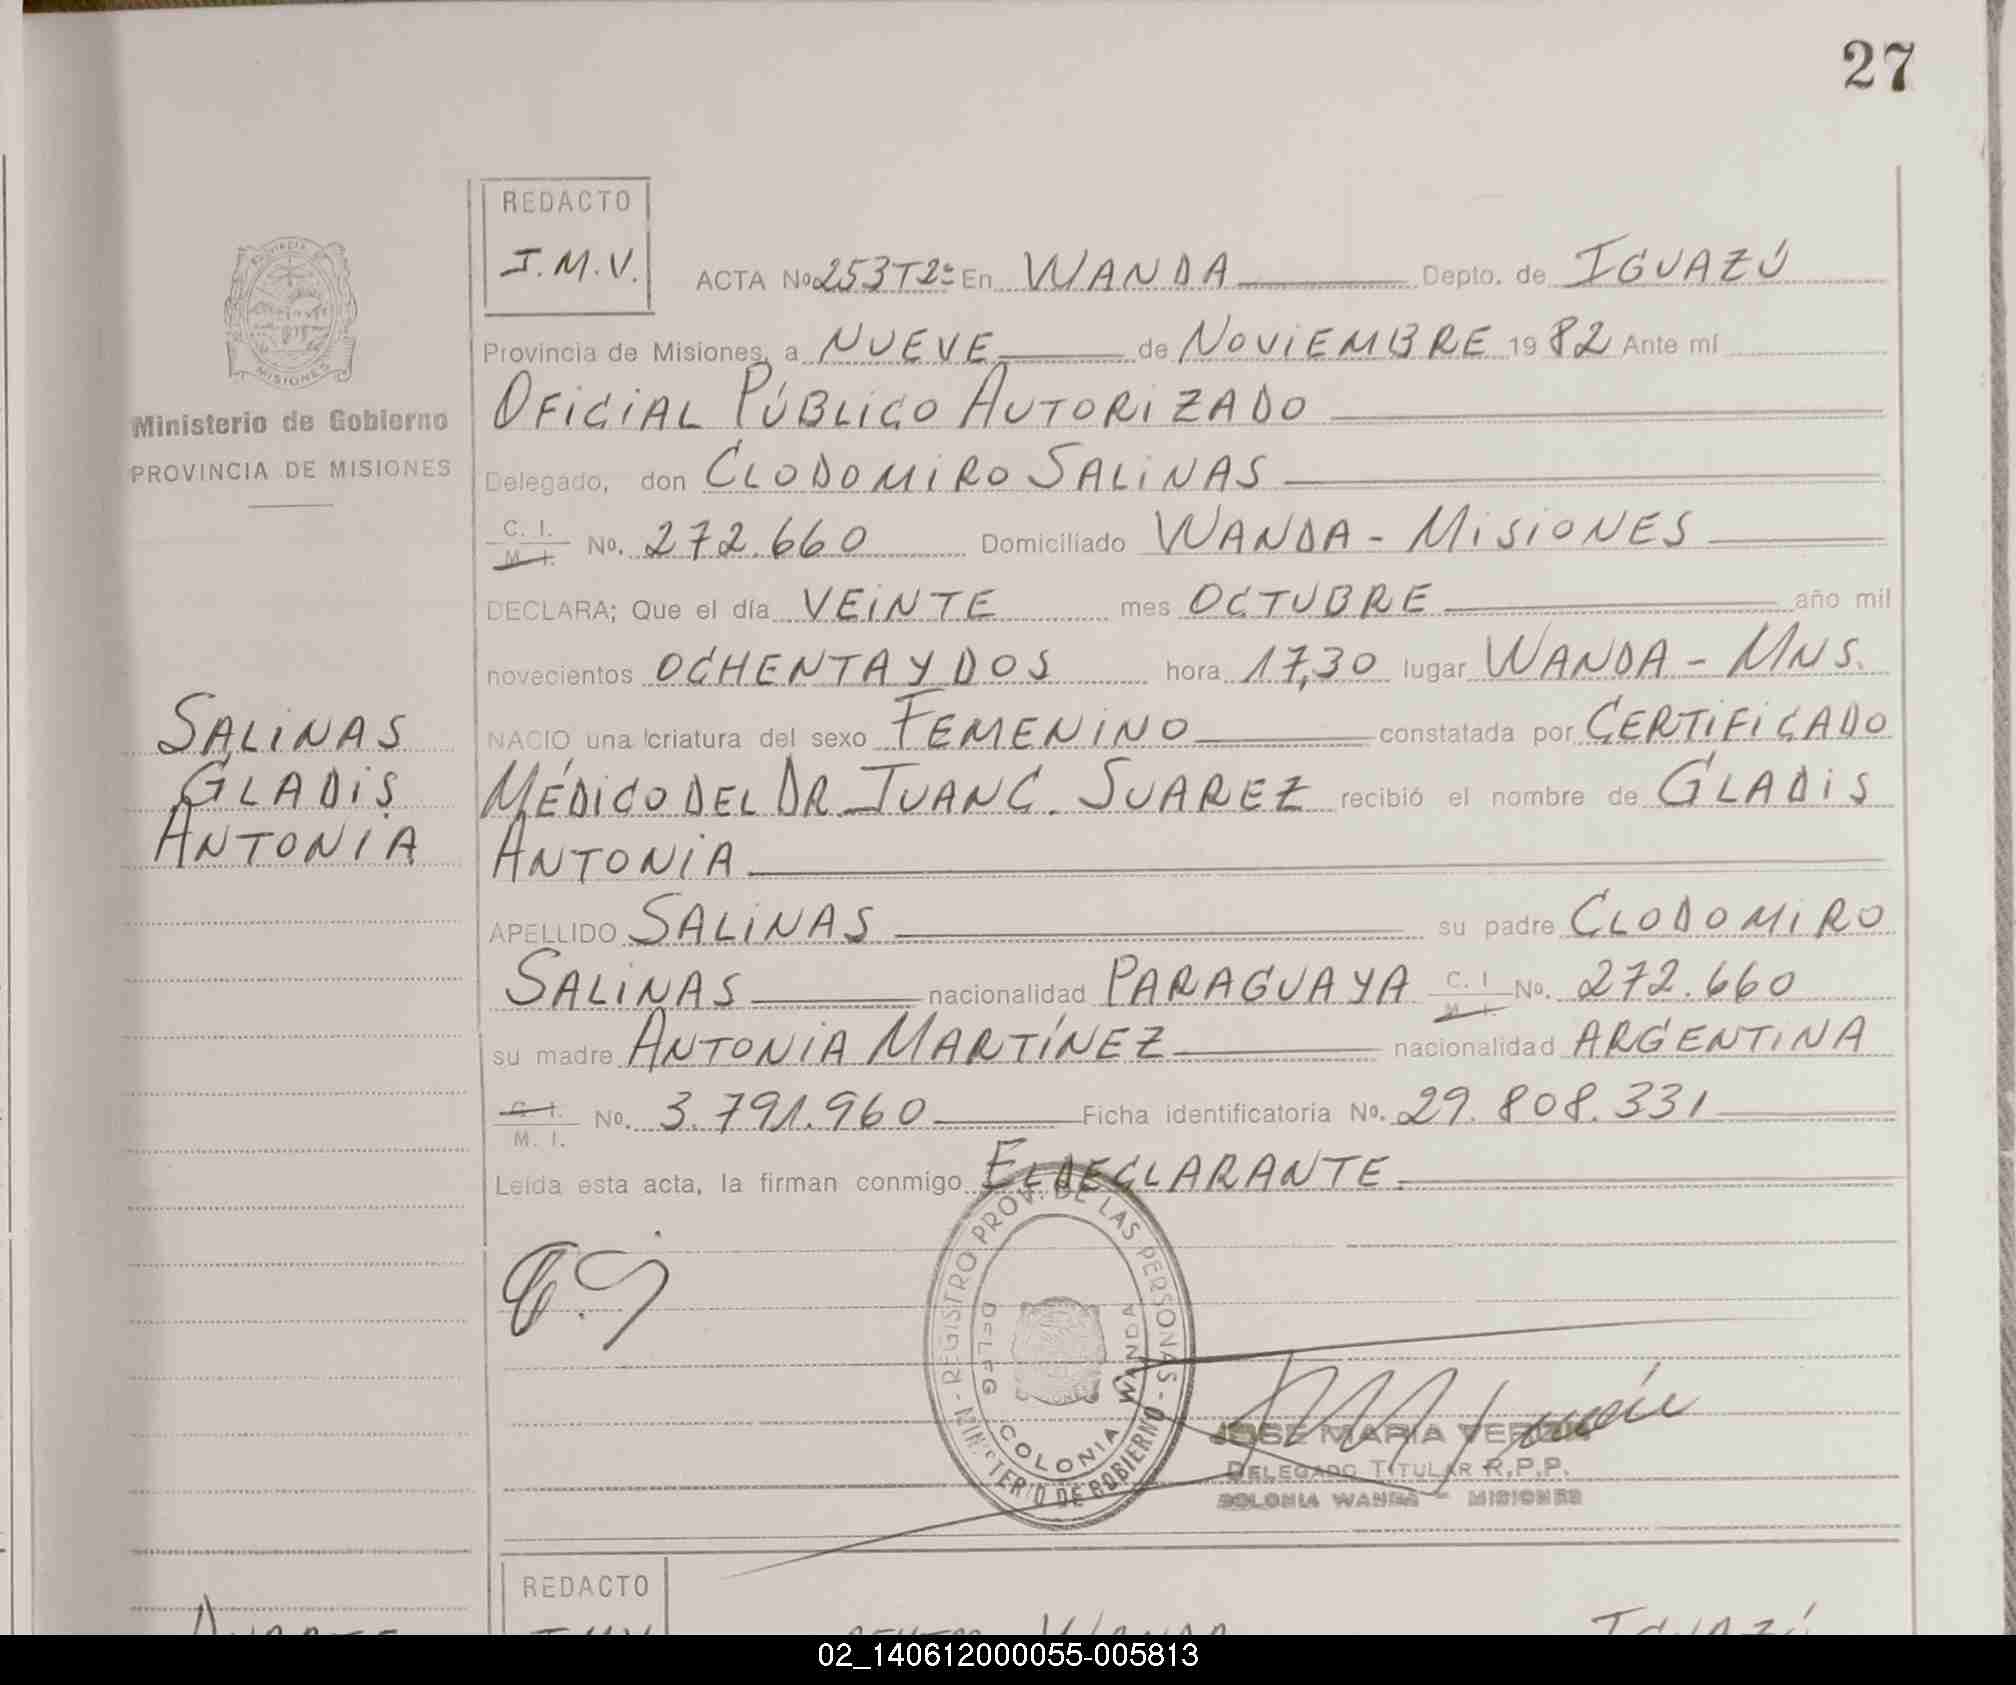 27
REDACTO
J.M.V.
ACTA No 253T2º En WANDA Depto. de IGUAZÚ
Provincia de Misiones, a NUEVE de NOVIEMBRE 19 82 Ante mí
OFICIAL PÚBLICO AUTORIZADO
Delegado, don CLODOMIRO SALINAS
C. I. M. I. No. 272.660 Domiciliado WANDA - MISIONES
DECLARA; Que el día VEINTE mes OCTUBRE año mil
novecientos OCHENTA Y DOS hora 17,30 lugar WANDA - MNS.
NACIO una criatura del sexo FEMENINO constatada por CERTIFICADO
MÉDICO DEL DR. JUAN C. SUAREZ recibió el nombre de GLADIS
ANTONIA
APELLIDO SALINAS su padre CLODOMIRO
SALINAS nacionalidad PARAGUAYA C. I. M. I. No. 272.660
su madre ANTONIA MARTÍNEZ nacionalidad ARGENTINA
C. I. M. I. No. 3.791.960 Ficha identificatoria No. 29.808.331
Leída esta acta, la firman conmigo EL DECLARANTE.
PROVINCIA
MISIONES
Ministerio de Gobierno
PROVINCIA DE MISIONES
SALINAS
GLADIS
ANTONIA
REGISTRO PROV. DE LAS PERSONAS - MINISTERIO DE GOBIERNO -
DELEG COLONIA WANDA
JOSE MARIA VERON
DELEGADO TITULAR R.P.P.
COLONIA WANDA - MISIONES
REDACTO
02_140612000055-005813